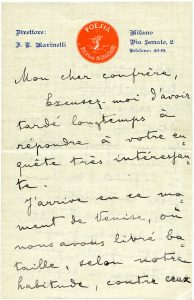 Direttore:
F. T. Marinetti
POESIA
RASSEGNA INTERNAZIONALE
Milano
Via Senato, 2
Telefono: 40-81
Mon cher confrère,
Excusez-moi d'avoir
tardé longtemps à
répondre à votre en-
quête très intéressan-
te.
J'arrive en ce mo-
ment de Venise, où
nous avons livré ba-
taille, selon notre
habitude, contre ceux